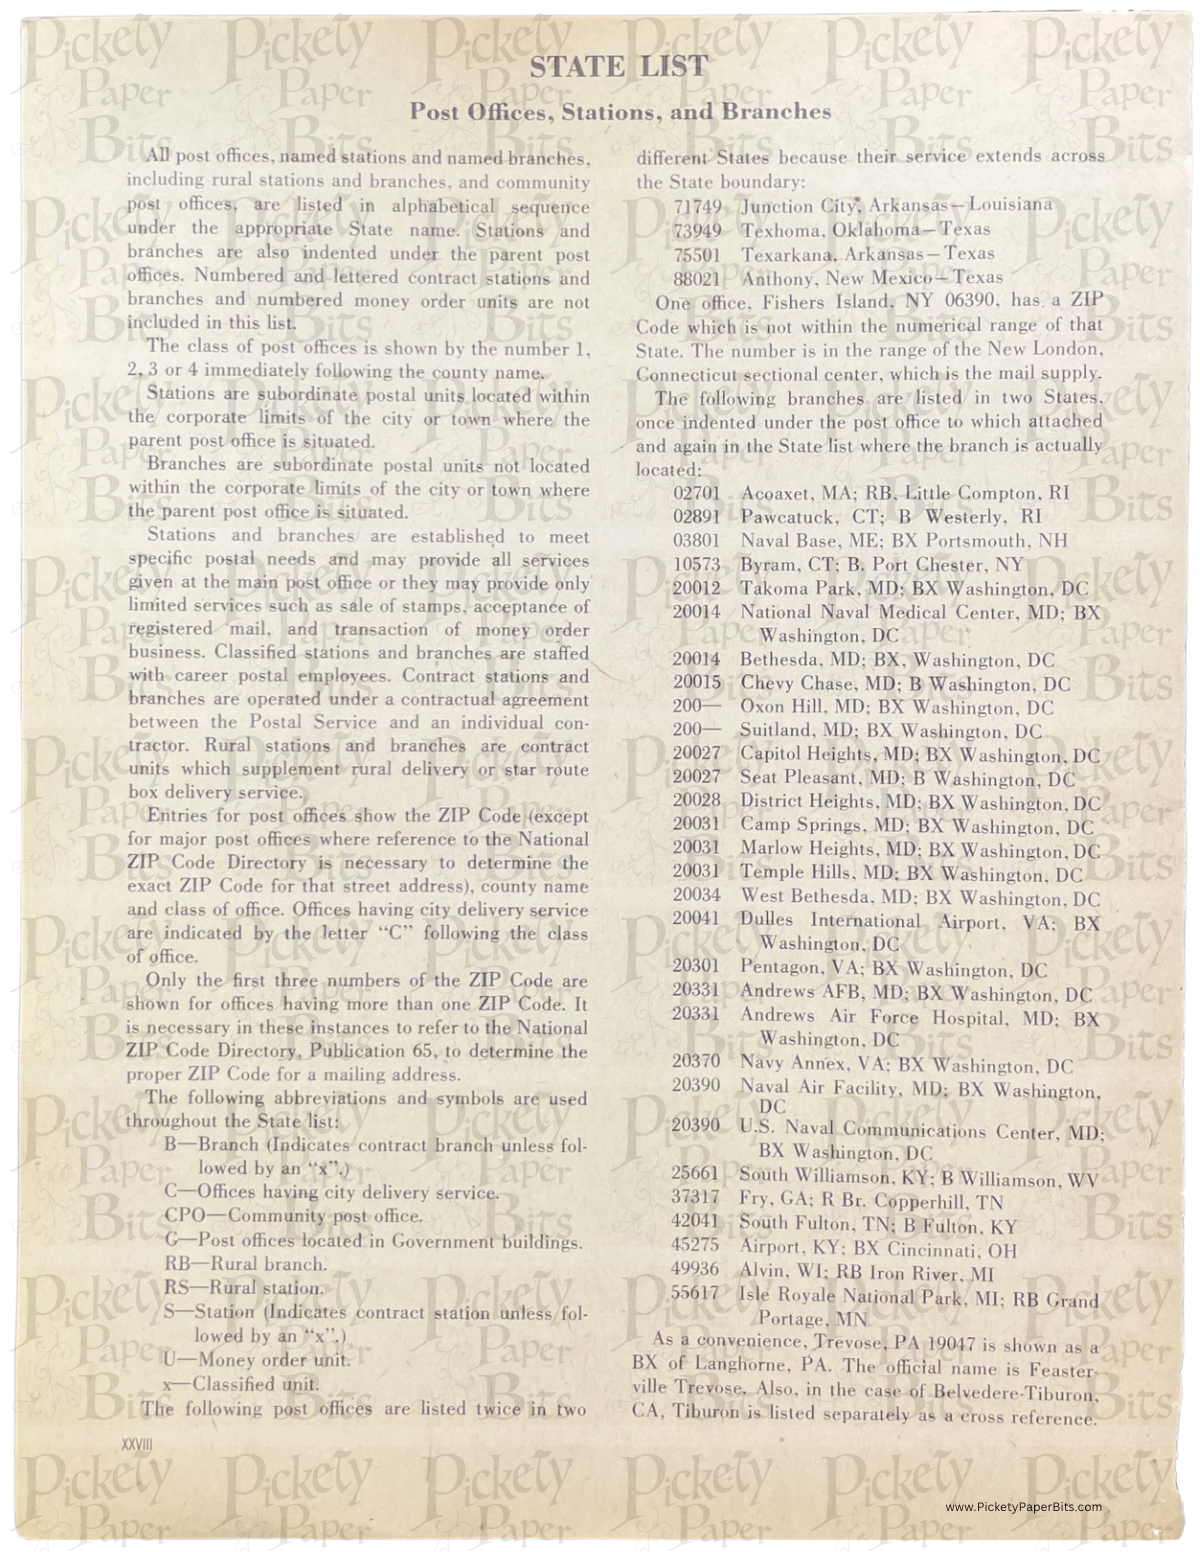 STATE LIST
Post Offices, Stations, and Branches
All post offices, named stations and named branches,
including rural stations and branches, and community
post offices, are listed in alphabetical sequence
under the appropriate State name. Stations and
branches are also indented under the parent post
offices. Numbered and lettered contract stations and
branches and numbered money order units are not
included in this list.
The class of post offices is shown by the number 1,
2, 3 or 4 immediately following the county name.
Stations are subordinate postal units located within
the corporate limits of the city or town where the
parent post office is situated.
Branches are subordinate postal units not located
within the corporate limits of the city or town where
the parent post office is situated.
Stations and branches are established to meet
specific postal needs and may provide all services
given at the main post office or they may provide only
limited services such as sale of stamps, acceptance of
registered mail, and transaction of money order
business. Classified stations and branches are staffed
with career postal employees. Contract stations and
branches are operated under a contractual agreement
between the Postal Service and an individual con-
tractor. Rural stations and branches are contract
units which supplement rural delivery or star route
box delivery service.
Entries for post offices show the ZIP Code (except
for major post offices where reference to the National
ZIP Code Directory is necessary to determine the
exact ZIP Code for that street address), county name
and class of office. Offices having city delivery service
are indicated by the letter “C” following the class
of office.
Only the first three numbers of the ZIP Code are
shown for offices having more than one ZIP Code. It
is necessary in these instances to refer to the National
ZIP Code Directory, Publication 65, to determine the
proper ZIP Code for a mailing address.
The following abbreviations and symbols are used
throughout the State list:
B—Branch (Indicates contract branch unless fol-
lowed by an “x”.)
C—Offices having city delivery service.
CPO—Community post office.
G—Post offices located in Government buildings.
RB—Rural branch.
RS—Rural station.
S—Station (Indicates contract station unless fol-
lowed by an “x”.)
U—Money order unit.
x—Classified unit.
The following post offices are listed twice in two
XXVIII
different States because their service extends across
the State boundary:
71749 Junction City, Arkansas—Louisiana
73949 Texhoma, Oklahoma—Texas
75501 Texarkana, Arkansas—Texas
88021 Anthony, New Mexico—Texas
One office, Fishers Island, NY 06390, has a ZIP
Code which is not within the numerical range of that
State. The number is in the range of the New London,
Connecticut sectional center, which is the mail supply.
The following branches are listed in two States,
once indented under the post office to which attached
and again in the State list where the branch is actually
located:
02701 Acoaxet, MA; RB, Little Compton, RI
02891 Pawcatuck, CT; B Westerly, RI
03801 Naval Base, ME; BX Portsmouth, NH
10573 Byram, CT; B. Port Chester, NY
20012 Takoma Park, MD; BX Washington, DC
20014 National Naval Medical Center, MD; BX
Washington, DC
20014 Bethesda, MD; BX, Washington, DC
20015 Chevy Chase, MD; B Washington, DC
200— Oxon Hill, MD; BX Washington, DC
200— Suitland, MD; BX Washington, DC
20027 Capitol Heights, MD; BX Washington, DC
20027 Seat Pleasant, MD; B Washington, DC
20028 District Heights, MD; BX Washington, DC
20031 Camp Springs, MD; BX Washington, DC
20031 Marlow Heights, MD; BX Washington, DC
20031 Temple Hills, MD; BX Washington, DC
20034 West Bethesda, MD; BX Washington, DC
20041 Dulles International Airport, VA; BX
Washington, DC
20301 Pentagon, VA; BX Washington, DC
20331 Andrews AFB, MD; BX Washington, DC
20331 Andrews Air Force Hospital, MD; BX
Washington, DC
20370 Navy Annex, VA; BX Washington, DC
20390 Naval Air Facility, MD; BX Washington,
DC
20390 U.S. Naval Communications Center, MD;
BX Washington, DC
25661 South Williamson, KY; B Williamson, WV
37317 Fry, GA; R Br. Copperhill, TN
42041 South Fulton, TN; B Fulton, KY
45275 Airport, KY; BX Cincinnati, OH
49936 Alvin, WI; RB Iron River, MI
55617 Isle Royale National Park, MI; RB Grand
Portage, MN
As a convenience, Trevose, PA 19047 is shown as a
BX of Langhorne, PA. The official name is Feaster-
ville Trevose. Also, in the case of Belvedere-Tiburon,
CA, Tiburon is listed separately as a cross reference.
www.PicketyPaperBits.com
Pickety
Paper
Bits